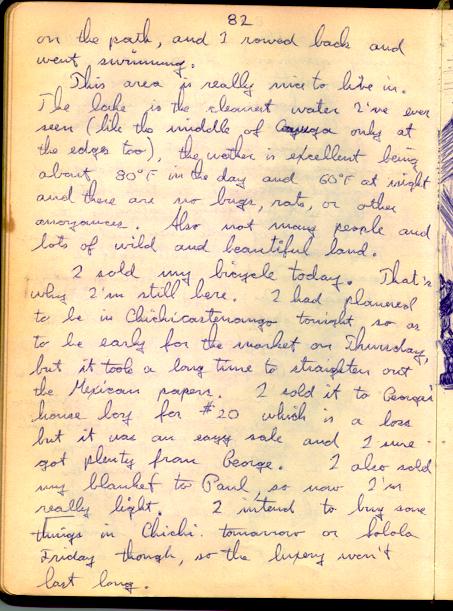 82
on the path, and I rowed back and
went swimming.
This area is really nice to live in.
The lake is the cleanest water I've ever
seen (like the middle of Cayuga only at
the edges too), the wether is excellent being
about 80°F in the day and 60°F at night
and there are no bugs, rats, or other
annoyances. Also not many people and
lots of wild and beautiful land.
I sold my bicycle today. That's
why I'm still here. I had planned
to be in Chichicastenango tonight so as
to be early for the market on Thursday,
but it took a long time to straighten out
the Mexican papers. I sold it to George's
house boy for $20 which is a loss
but it was an easy sale and I sure
got plenty from George. I also sold
my blanket to Paul, so now I'm
really light. I intend to buy some
things in Chichi. tomorrow or Solola
Friday though, so the luxery won't
last long.